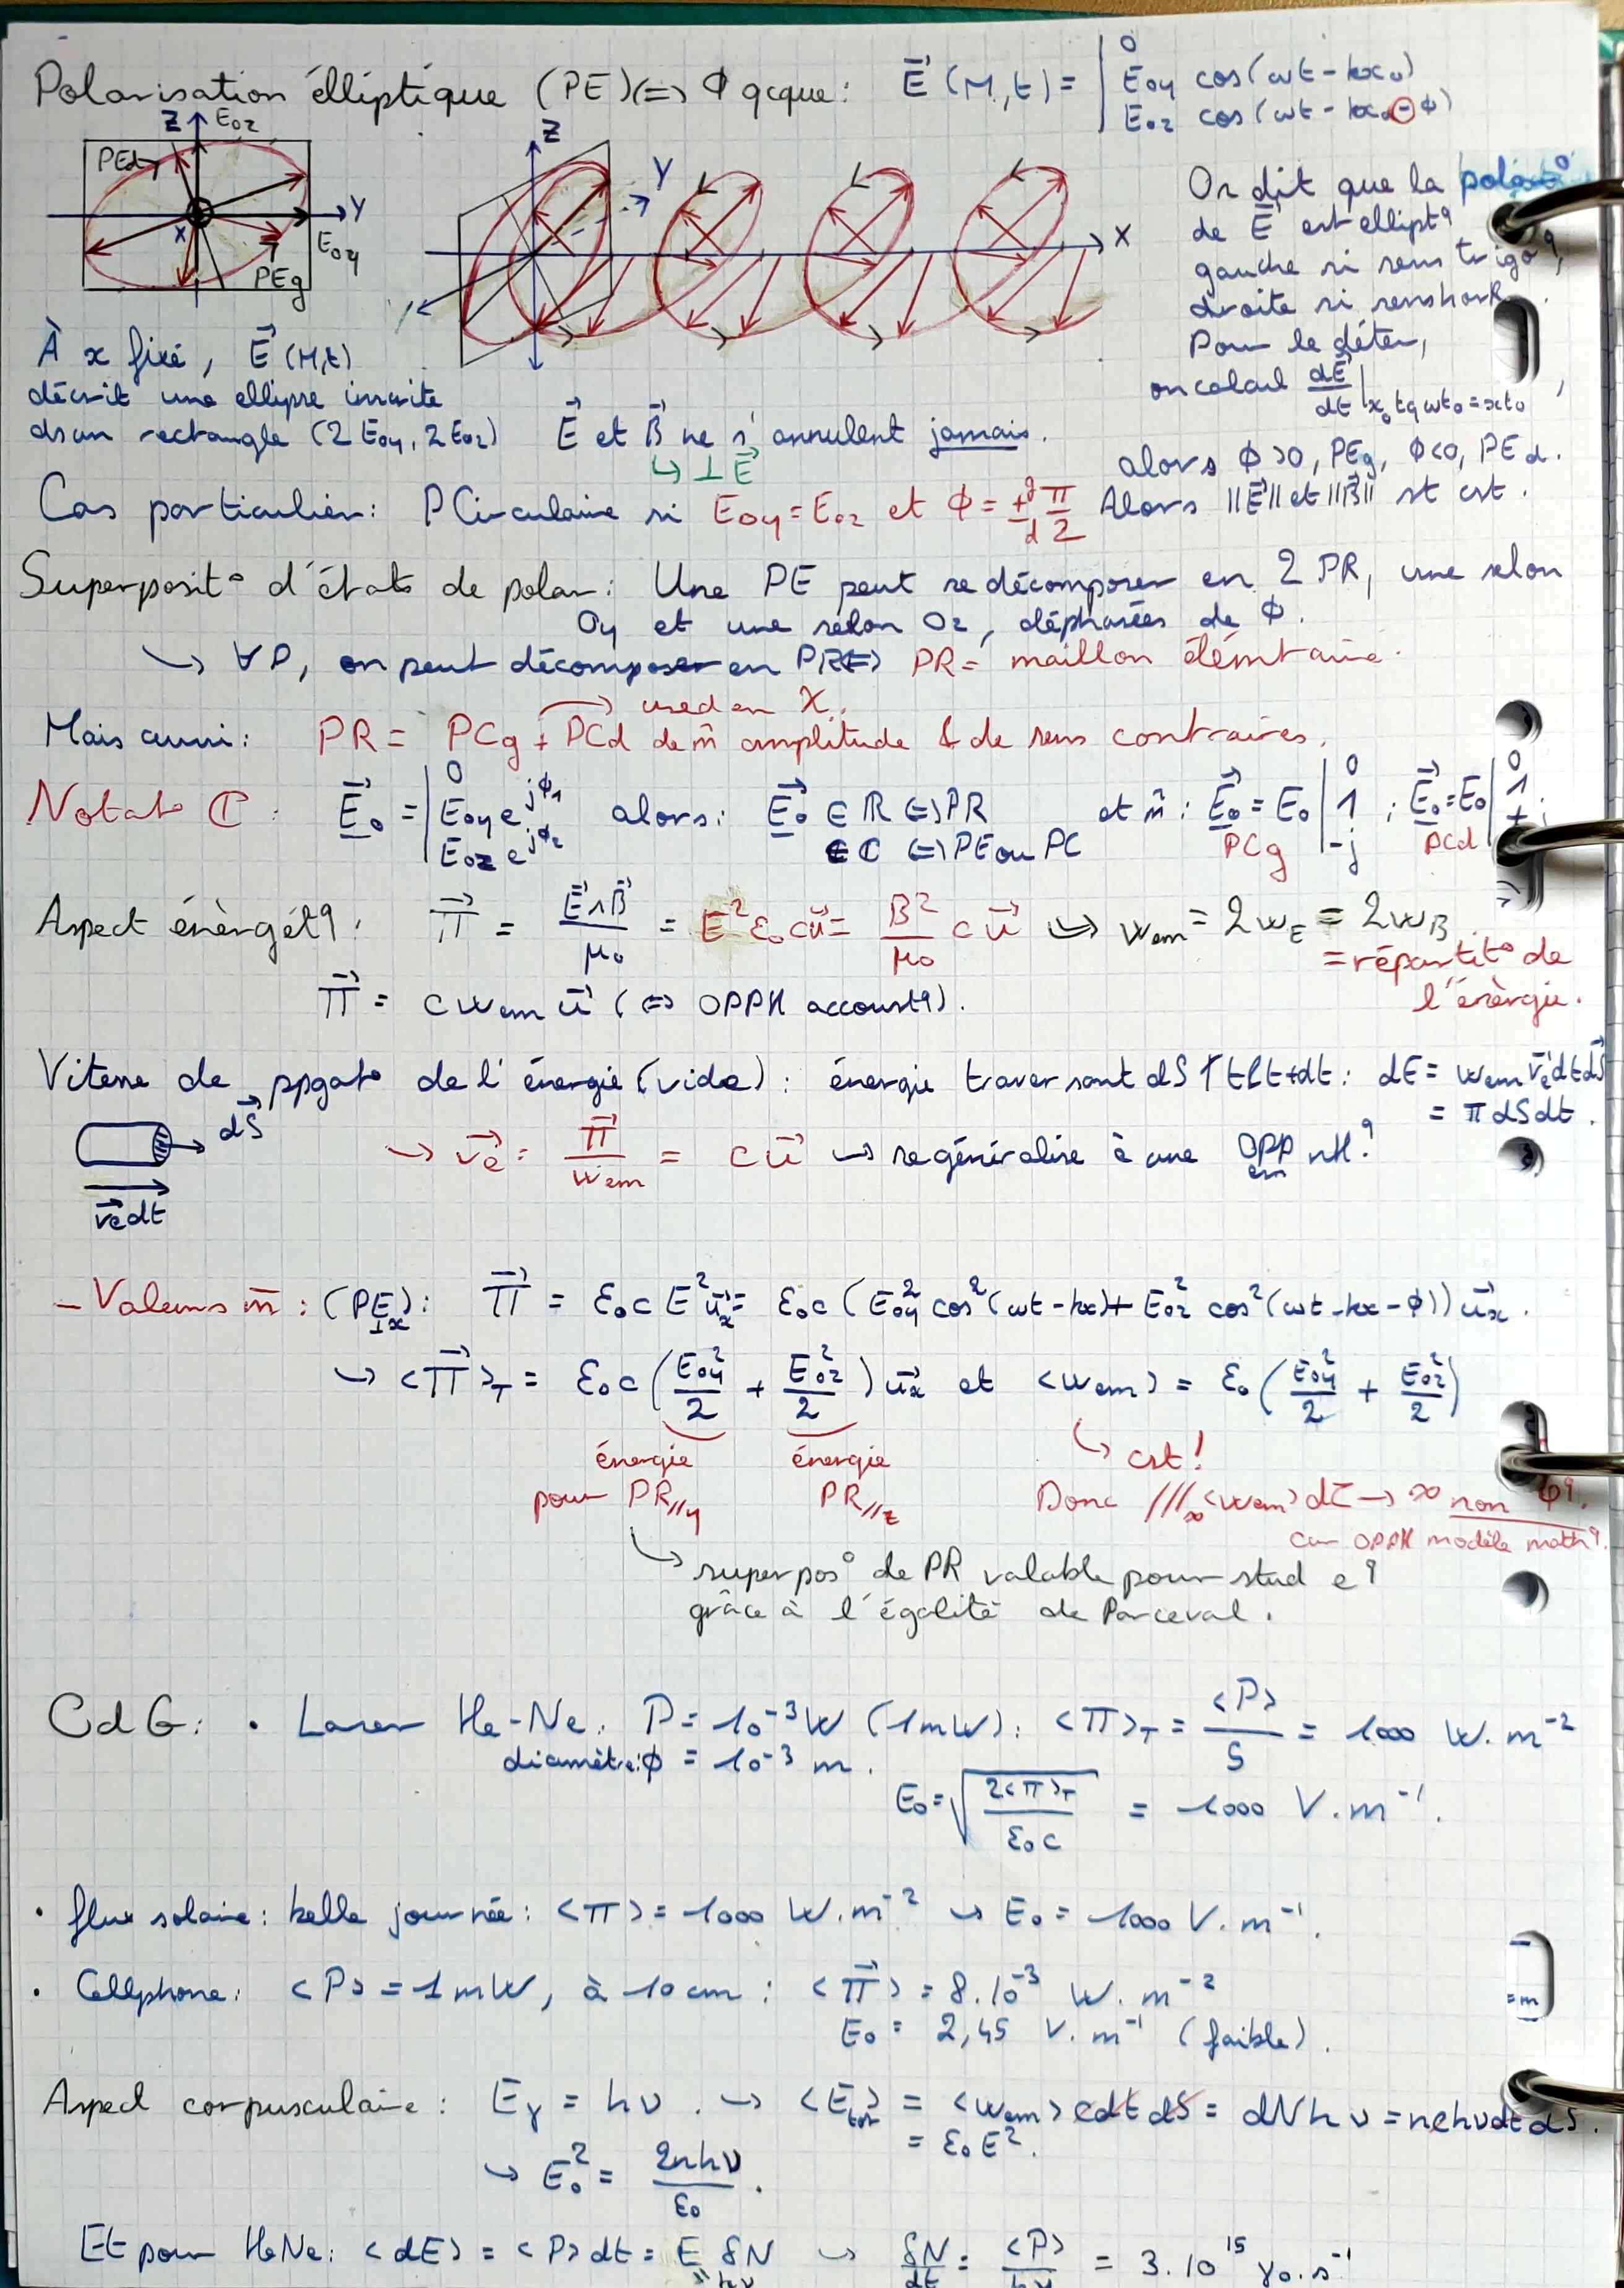 Polarisation élliptique (PE) <=> Φ qcque : E⃗(M,t) = | 0
E0y cos(ωt-kx0)
E0z cos(ωt-kx0-Φ)
Z E0z
PEd
Y
E0y
x
PEg
Z
Y
X
On dit que la
de E⃗ est ellipt9
gauche si sens trigo9,
droite si sens hor
Pour le déter,
on calcul dE⃗/dt|x0 tq ωt0=xt0,
alors Φ>0, PEg, Φ<0, PEd.
À x fixé, E⃗(M,t)
décrit une ellipse inscrite
ds un rectangle (2E0y, 2E0z) E⃗ et B⃗ ne s'annulent jamais.
↳ ⊥E⃗
Cas particulier : PCirculaire si E0y=E0z et Φ = ±π/2 g d Alors ||E⃗|| et ||B⃗|| st cst.
Superposit° d'états de polar : Une PE peut se décomposer en 2 PR, une selon
Oy et une selon Oz, déphasées de Φ.
↳ ∀P, on peut décomposer en PR <=> PR = maillon élémtaire.
used en X.
Mais aussi : PR = PCg + PCd de m̄ amplitude & de sens contraires.
Notat° ℂ : E⃗0 = | 0 E0y e^jΦ1 E0z e^jΦ2 alors : E⃗0 ∈ ℝ <=> PR
∈ ℂ <=> PE ou PC
et m̄ : E⃗0 = E0 | 0 1 -j PCg ; E⃗0 = E0 | 0 1 +j PCd
Aspect énèrgét9 : Π⃗ = E⃗∧B⃗/μ0 = E²ε0cu⃗ = B²/μ0 cu⃗ ↳ wem = 2wE = 2wB
= répartit° de
l'énèrgie.
Π⃗ = cwem u⃗ (<=> OPPH accoust9).
Vitesse de ppgat° de l'énergie (vide) : énergie traversant dS ↑ t&t+dt : dE = wem v⃗e dt dS⃗
= Π dS dt.
dS⃗
v⃗e dt
→ v⃗e = Π⃗/wem = cu⃗ ↳ se généralise à une OPP em nH !
- Valeurs m̄ : (PE⊥x) : Π⃗ = ε0cE²u⃗x = ε0c (E0y² cos²(ωt-kx) + E0z² cos²(ωt-kx-Φ)) u⃗x.
↳ <Π⃗>T = ε0c (E0y²/2 + E0z²/2) u⃗x et <wem> = ε0 (E0y²/2 + E0z²/2)
énergie pour PR//y
énergie PR//z
↳ cst !
Donc ///∞ <wem> dτ → ∞ non φ9.
car OPPH modèle math9.
↳ superpos° de PR valable pour stud e9
grâce à l'égalité de Parceval.
CdG : • Laser He-Ne : P = 10⁻³W (1mW) : <Π>T = <P>/S = 1000 W.m⁻²
diamètre : Φ = 10⁻³ m.
E0 = √(2<Π>T/ε0c) = 1000 V.m⁻¹.
• flux solaire : belle journée : <Π> = 1000 W.m⁻² ↳ E0 = 1000 V.m⁻¹.
• Cellphone : <P> = 1mW, à 10cm : <Π⃗> = 8.10⁻³ W.m⁻²
E0 = 2,45 V.m⁻¹ (faible).
=m
Aspect corpusculaire : Eγ = hν. ↳ <Etot> = <wem> cdtdS = dNhν = nchνdtdS.
= ε0E².
↳ E0² = 2nhν/ε0.
Et pour HeNe : <dE> = <P>dt = E δN ↳ δN/dt = <P>/hν = 3.10¹⁵ γo.s⁻¹
hν